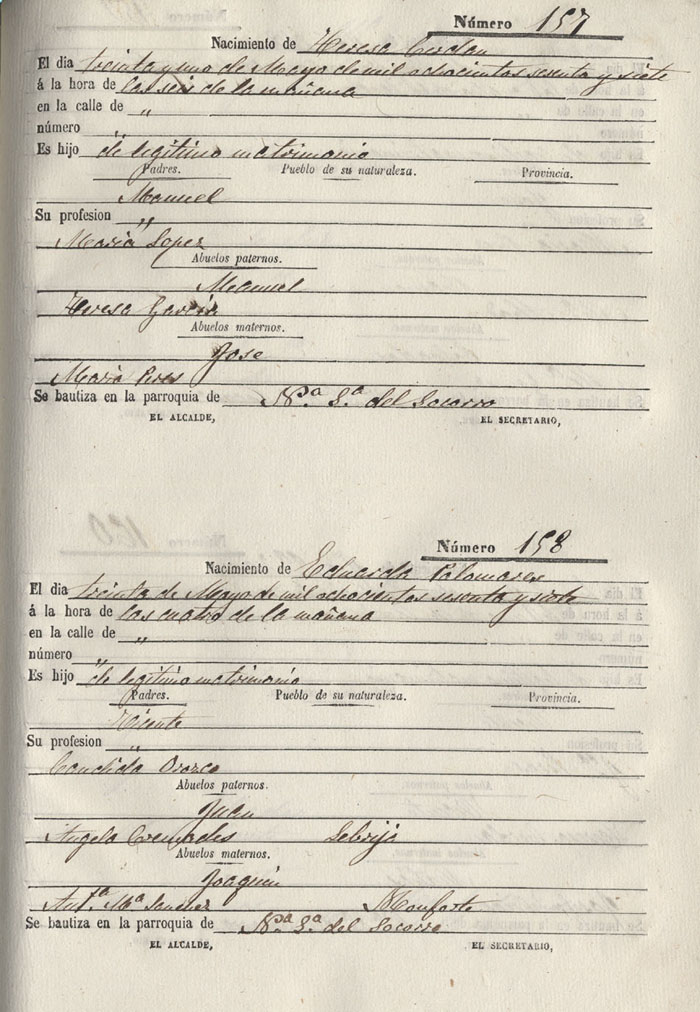 Número 157
Nacimiento de Teresa Cerdan
El dia treinta y uno de Mayo de mil ochocientos sesenta y siete
á la hora de las seis de la mañana
en la calle de "
número "
Es hijo de legitimo matrimonio
Padres. Pueblo de su naturaleza. Provincia.
Manuel
Su profesion "
Maria Lopez
Abuelos paternos.
Manuel
Teresa Garcia
Abuelos maternos.
Jose
Maria Peres
Se bautiza en la parroquia de Nª Sª del Socorro
EL ALCALDE, EL SECRETARIO,
Número 158
Nacimiento de Eduarda Palomares
El dia treinta de Mayo de mil ochocientos sesenta y siete
á la hora de las cuatro de la mañana
en la calle de "
número "
Es hijo de legitimo matrimonio
Padres. Pueblo de su naturaleza. Provincia.
Vicente
Su profesion "
Candida Orozco
Abuelos paternos.
Juan
Angela Cremades
Abuelos maternos.
Joaquin
Antª Mª Sanchez Monforte
Se bautiza en la parroquia de Nª Sª del Socorro
EL ALCALDE, EL SECRETARIO,